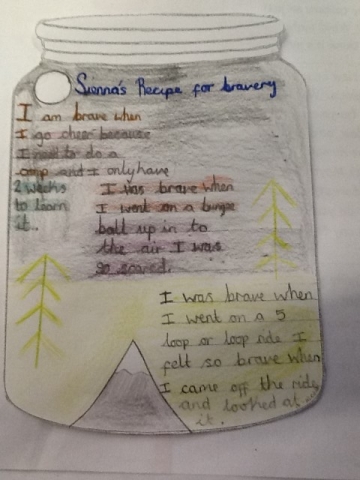 Sienna's Recipe for bravery
I am brave when
I go cheer because
I need to do a
comp and I only have
2 weeks
to learn
it..
I was brave when
I went on a bungee
ball up in to
the air I was
so scared.
I was brave when
I went on a 5
loop or loop ride I
felt so brave when
I came off the ride
and looked at
it.